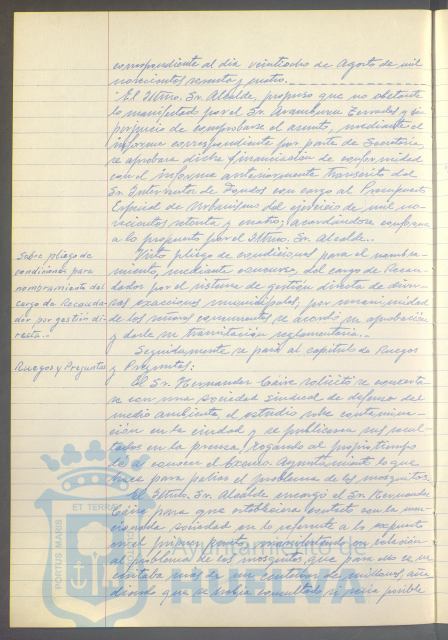 correspondiente al día veintiocho de Agosto de mil
novecientos setenta y cuatro.
El Iltmo. Sr. Alcalde, propuso que no obstante
lo manifestado por el Sr. Aramburu Terrades y sin
perjuicio de comprobarse el asunto, mediante el
informe correspondiente por parte de Secretaría,
se aprobara dicha financiación de conformidad
con el informe anteriormente transcrito del
Sr. Interventor de Fondos con cargo al Presupuesto
Especial de Urbanismo del ejercicio de mil no-
vecientos setenta y cuatro; acordándose conforme
a lo propuesto por el Iltmo. Sr. Alcalde.
Sobre pliego de
condiciones para
nombramiento del
cargo de Recauda-
dor por gestión di-
recta.
Visto pliego de condiciones para el nombra-
miento, mediante concurso, del cargo de Recau-
dador por el sistema de gestión directa de diver-
sas exacciones municipales, por unanimidad
de los señores concurrentes se acordó su aprobación
y darle su tramitación reglamentaria.
Ruegos y Preguntas
Seguidamente se pasó al capítulo de Ruegos
y Preguntas:
El Sr. Hernández solicitó se concerta-
se con una sociedad sindical de defensa del
medio ambiente, el estudio sobre contamina-
ción en la ciudad y se publicaran sus resul-
tados en la prensa, rogando al propio tiempo
conocer el Excmo. Ayuntamiento lo que
hace para paliar el problema de los mosquitos.
El Iltmo. Sr. Alcalde encargó al Sr. Hernández
para que estableciera contacto con la men-
cionada sociedad en lo referente a lo expuesto
en el primer punto, manifestando en relación
al problema de los mosquitos, que para ello se ne-
cesitaba más de un centenar de millones, aña-
diendo que se había consultado si sería posible
PORTUS MARIS
ET TERRAE
Ayuntamiento de
HUELVA